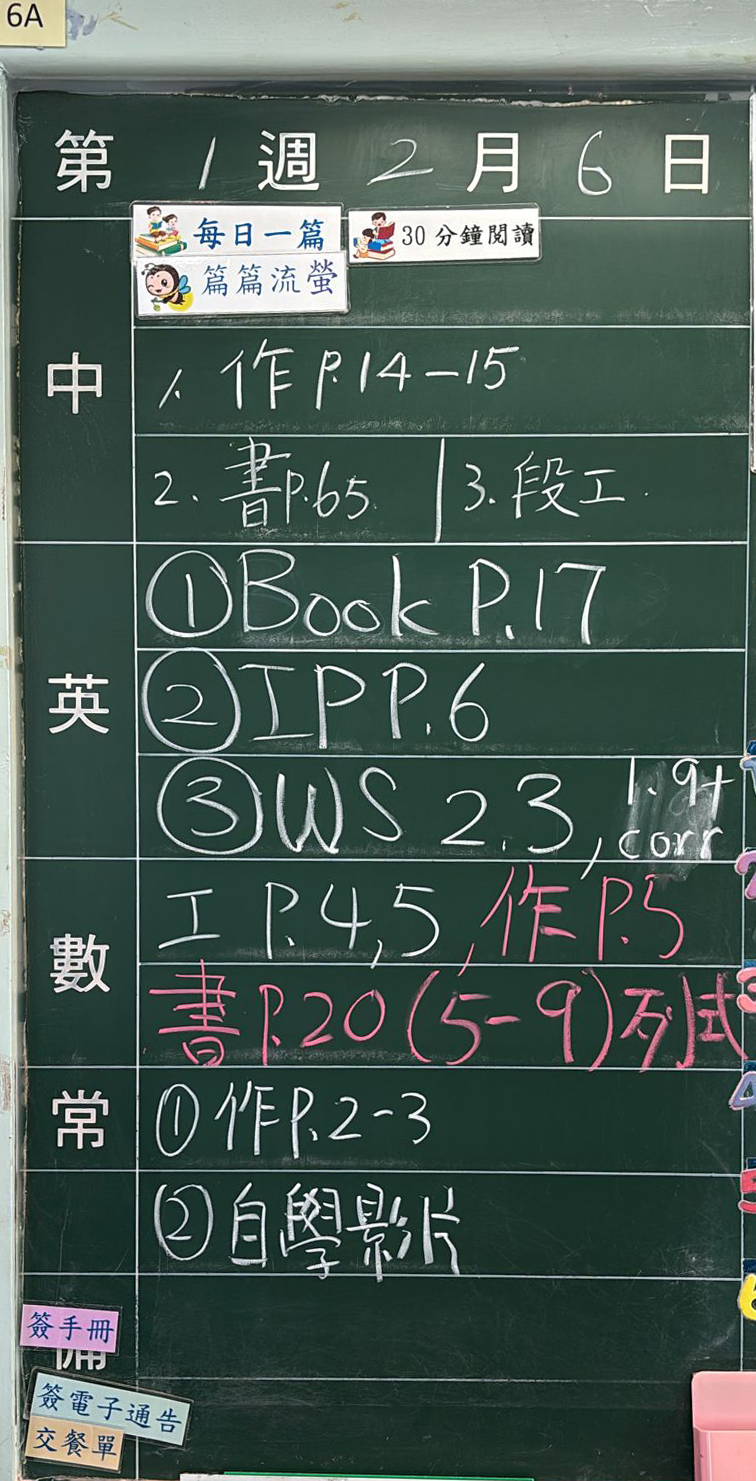 6A
第 1 週 2 月 6 日
每日一篇 30分鐘閱讀
篇篇流螢
中
1. 作 P.14-15
2. 書P.65 3. 段工.
英
① Book P.17
② IP P.6
③ WS 2.3, 1.9+
corr
數
工 P.4,5,作 P.5
書 P.20 (5-9) 列式
常
① 作P.2-3
② 自學影片
簽手冊
備
簽電子通告
交餐單